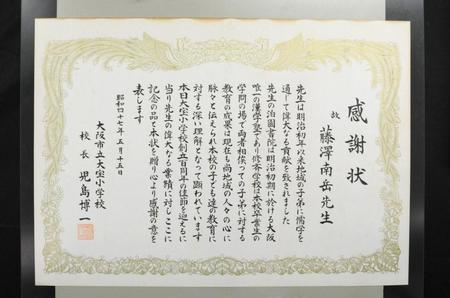 感謝状
故 藤澤南岳先生
先生は明治初年以来地域の子弟に儒学を
通して偉大なる貢献を致されました
先生の泊園書院は明治初期に於ける大阪
唯一の漢学塾であり修斉学校は本校卒業生の
学問の場で両者相俟っての子弟に対する
教育の成果は現在も尚地域の人々の心に
脉々と伝えられ本校の子ども達の教育に
対する深い理解となって顕われています
本日大宝小学校創立百周年の佳節を迎えるに
当り先生の偉大なる業績に対しここに
記念の品と本状を贈り心より感謝の意を
表します
昭和四十七年五月十五日
大阪市立大宝小学校
校長 児島博一